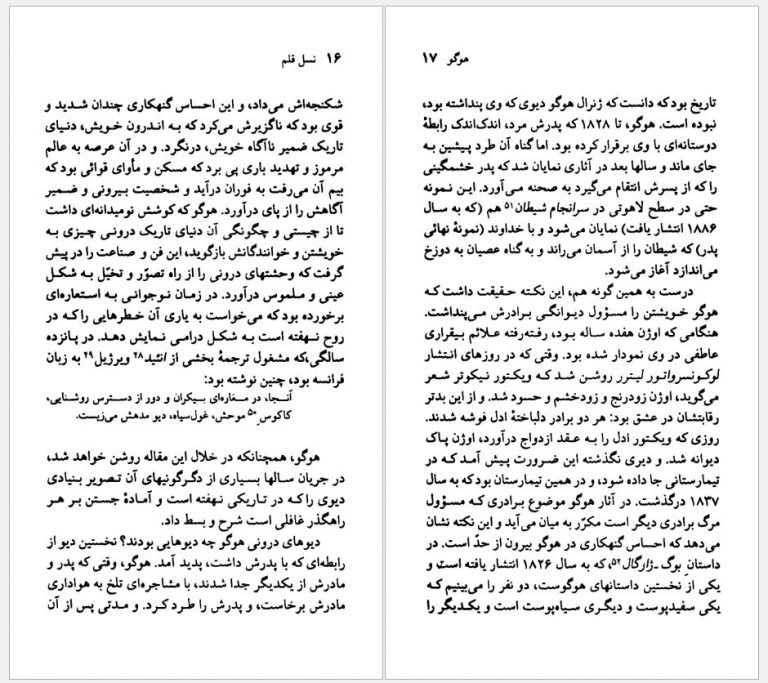 ۱۶ نسل قلم
شکنجه‌اش می‌داد، و این احساس گنهکاری چندان شدید و
قوی بود که ناگزیرش می‌کرد که به اندرون خویش، دنیای
تاریک ضمیر ناآگاه خویش، درنگرد. و در آن عرصه به عالم
مرموز و تهدید باری پی برد که مسکن و مأوای قوائی بود که
بیم آن می‌رفت به فوران درآید و شخصیت بیرونی و ضمیر
آگاهش را از پای درآورد. هوگو که کوشش نومیدانه‌ای داشت
تا از چیستی و چگونگی آن دنیای تاریک درونی چیزی به
خویشتن و خوانندگانش بازگوید، این فن و صناعت را در پیش
گرفت که وحشتهای درونی را از راه تصوّر و تخیّل به شکل
عینی و ملموس درآورد. در زمان نوجوانی به استعاره‌ای
برخورده بود که می‌خواست به یاری آن خطرهایی را که در
روح نهفته است به شکل درامی نمایش دهد. در پانزده
سالگی،که مشغول ترجمهٔ بخشی از انئید ۲۸ ویرژیل ۲۹ به زبان
فرانسه بود، چنین نوشته بود:
آنجا، در مغاره‌ای بیکران و دور از دسترس روشنایی،
کاکوس ۵۰ موحش، غول‌سیاه، دیو مدهش می‌زیست.
هوگو، همچنانکه در خلال این مقاله روشن خواهد شد،
در جریان سالها بسیاری از دگرگونیهای آن تصویر بنیادی
دیوی را که در تاریکی نهفته است و آمادهٔ جستن بر هر
راهگذر غافلی است شرح و بسط داد.
دیوهای درونی هوگو چه دیوهایی بودند؟ نخستین دیو از
رابطه‌ای که با پدرش داشت، پدید آمد. هوگو، وقتی که پدر و
مادرش از یکدیگر جدا شدند، با مشاجره‌ای تلخ به هواداری
مادرش برخاست، و پدرش را طرد کرد. و مدتی پس از آن
هوگو ۱۷
تاریخ بود که دانست که ژنرال هوگو دیوی که وی پنداشته بود،
نبوده است. هوگو، تا ۱۸۲۸ که پدرش مرد، اندک‌اندک رابطهٔ
دوستانه‌ای با وی برقرار کرده بود. اما گناه آن طرد پیشین به
جای ماند و سالها بعد در آثاری نمایان شد که پدر خشمگینی
را که از پسرش انتقام می‌گیرد به صحنه می‌آورد. این نمونه
حتی در سطح لاهوتی در سرانجام شیطان ۵۱ هم (که به سال
۱۸۸۶ انتشار یافت) نمایان می‌شود و با خداوند (نمونهٔ نهائی
پدر) که شیطان را از آسمان می‌راند و به گناه عصیان به دوزخ
می‌اندازد آغاز می‌شود.
درست به همین گونه هم، این نکته حقیقت داشت که
هوگو خویشتن را مسؤول دیوانگی برادرش می‌پنداشت.
هنگامی که اوژن هفده ساله بود، رفته‌رفته علائم بیقراری
عاطفی در وی نمودار شده بود. وقتی که در روزهای انتشار
لوکونسرواتور لیترر روشن شد که ویکتور نیکوتر شعر
می‌گوید، اوژن زودرنج و زودخشم و حسود شد. و از این بدتر
رقابتشان در عشق بود: هر دو برادر دلباختهٔ ادل فوشه شدند.
روزی که ویکتور ادل را به عقد ازدواج درآورد، اوژن پاک
دیوانه شد. و دیری نگذشته این ضرورت پیش آمد که در
تیمارستانی جا داده شود، و در همین تیمارستان بود که به سال
۱۸۳۷ درگذشت. در آثار هوگو موضوع برادری که مسؤول
مرگ برادری دیگر است مکرّر به میان می‌آید و این نکته نشان
می‌دهد که احساس گنهکاری در هوگو بیرون از حدّ است. در
داستان بوگ-ژارگال ۵۲، که به سال ۱۸۲۶ انتشار یافته است و
یکی از نخستین داستانهای هوگوست، دو نفر را می‌بینیم که
یکی سفیدپوست و دیگری سیاه‌پوست است و یکدیگر را